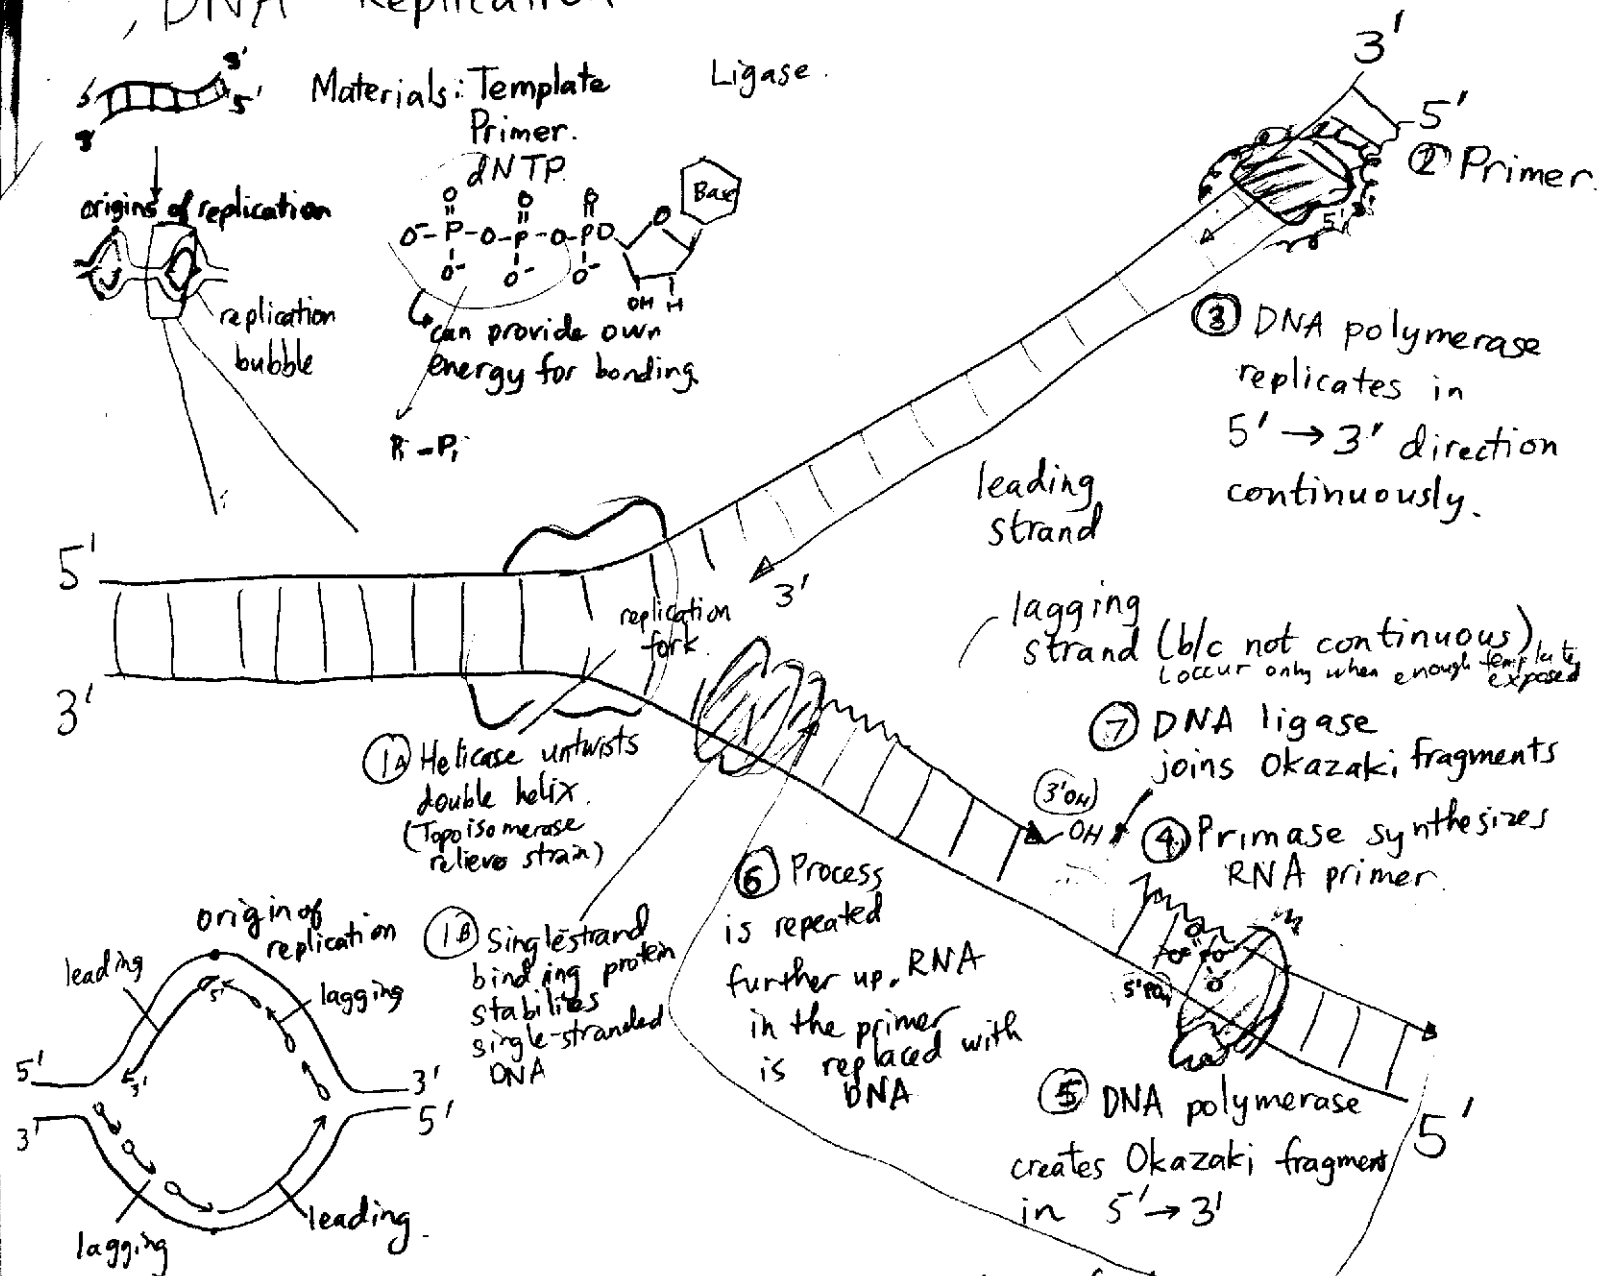 , DNA Replication
3'
5'
3'
Materials: Template
Primer.
dNTP
Ligase.
origins of replication
replication
bubble
O
O
O
O⁻-P-O-P-O-PO
O⁻
O⁻
O⁻
O
Base
OH H
can provide own
energy for bonding.
3'
5'
② Primer.
5'
③ DNA polymerase
replicates in
5' → 3' direction
continuously.
leading
strand
3'
5'
3'
replication
fork.
lagging
strand (b/c not continuous)
occur only when enough template
exposed
⑦ DNA ligase
joins Okazaki fragments
3'OH
OH
④ Primase synthesizes
RNA primer.
1A Helicase untwists
double helix.
(Topoisomerase
relieve strain)
1B Singlestrand
binding protein
stabilizes
single-stranded
DNA
⑥ Process
is repeated
further up. RNA
in the primer
is replaced with
DNA
5'PO₄
⑤ DNA polymerase
creates Okazaki fragment
in 5' → 3'
5'
origin of
replication
leading
lagging
5'
3'
5'
3'
3'
5'
lagging
leading.